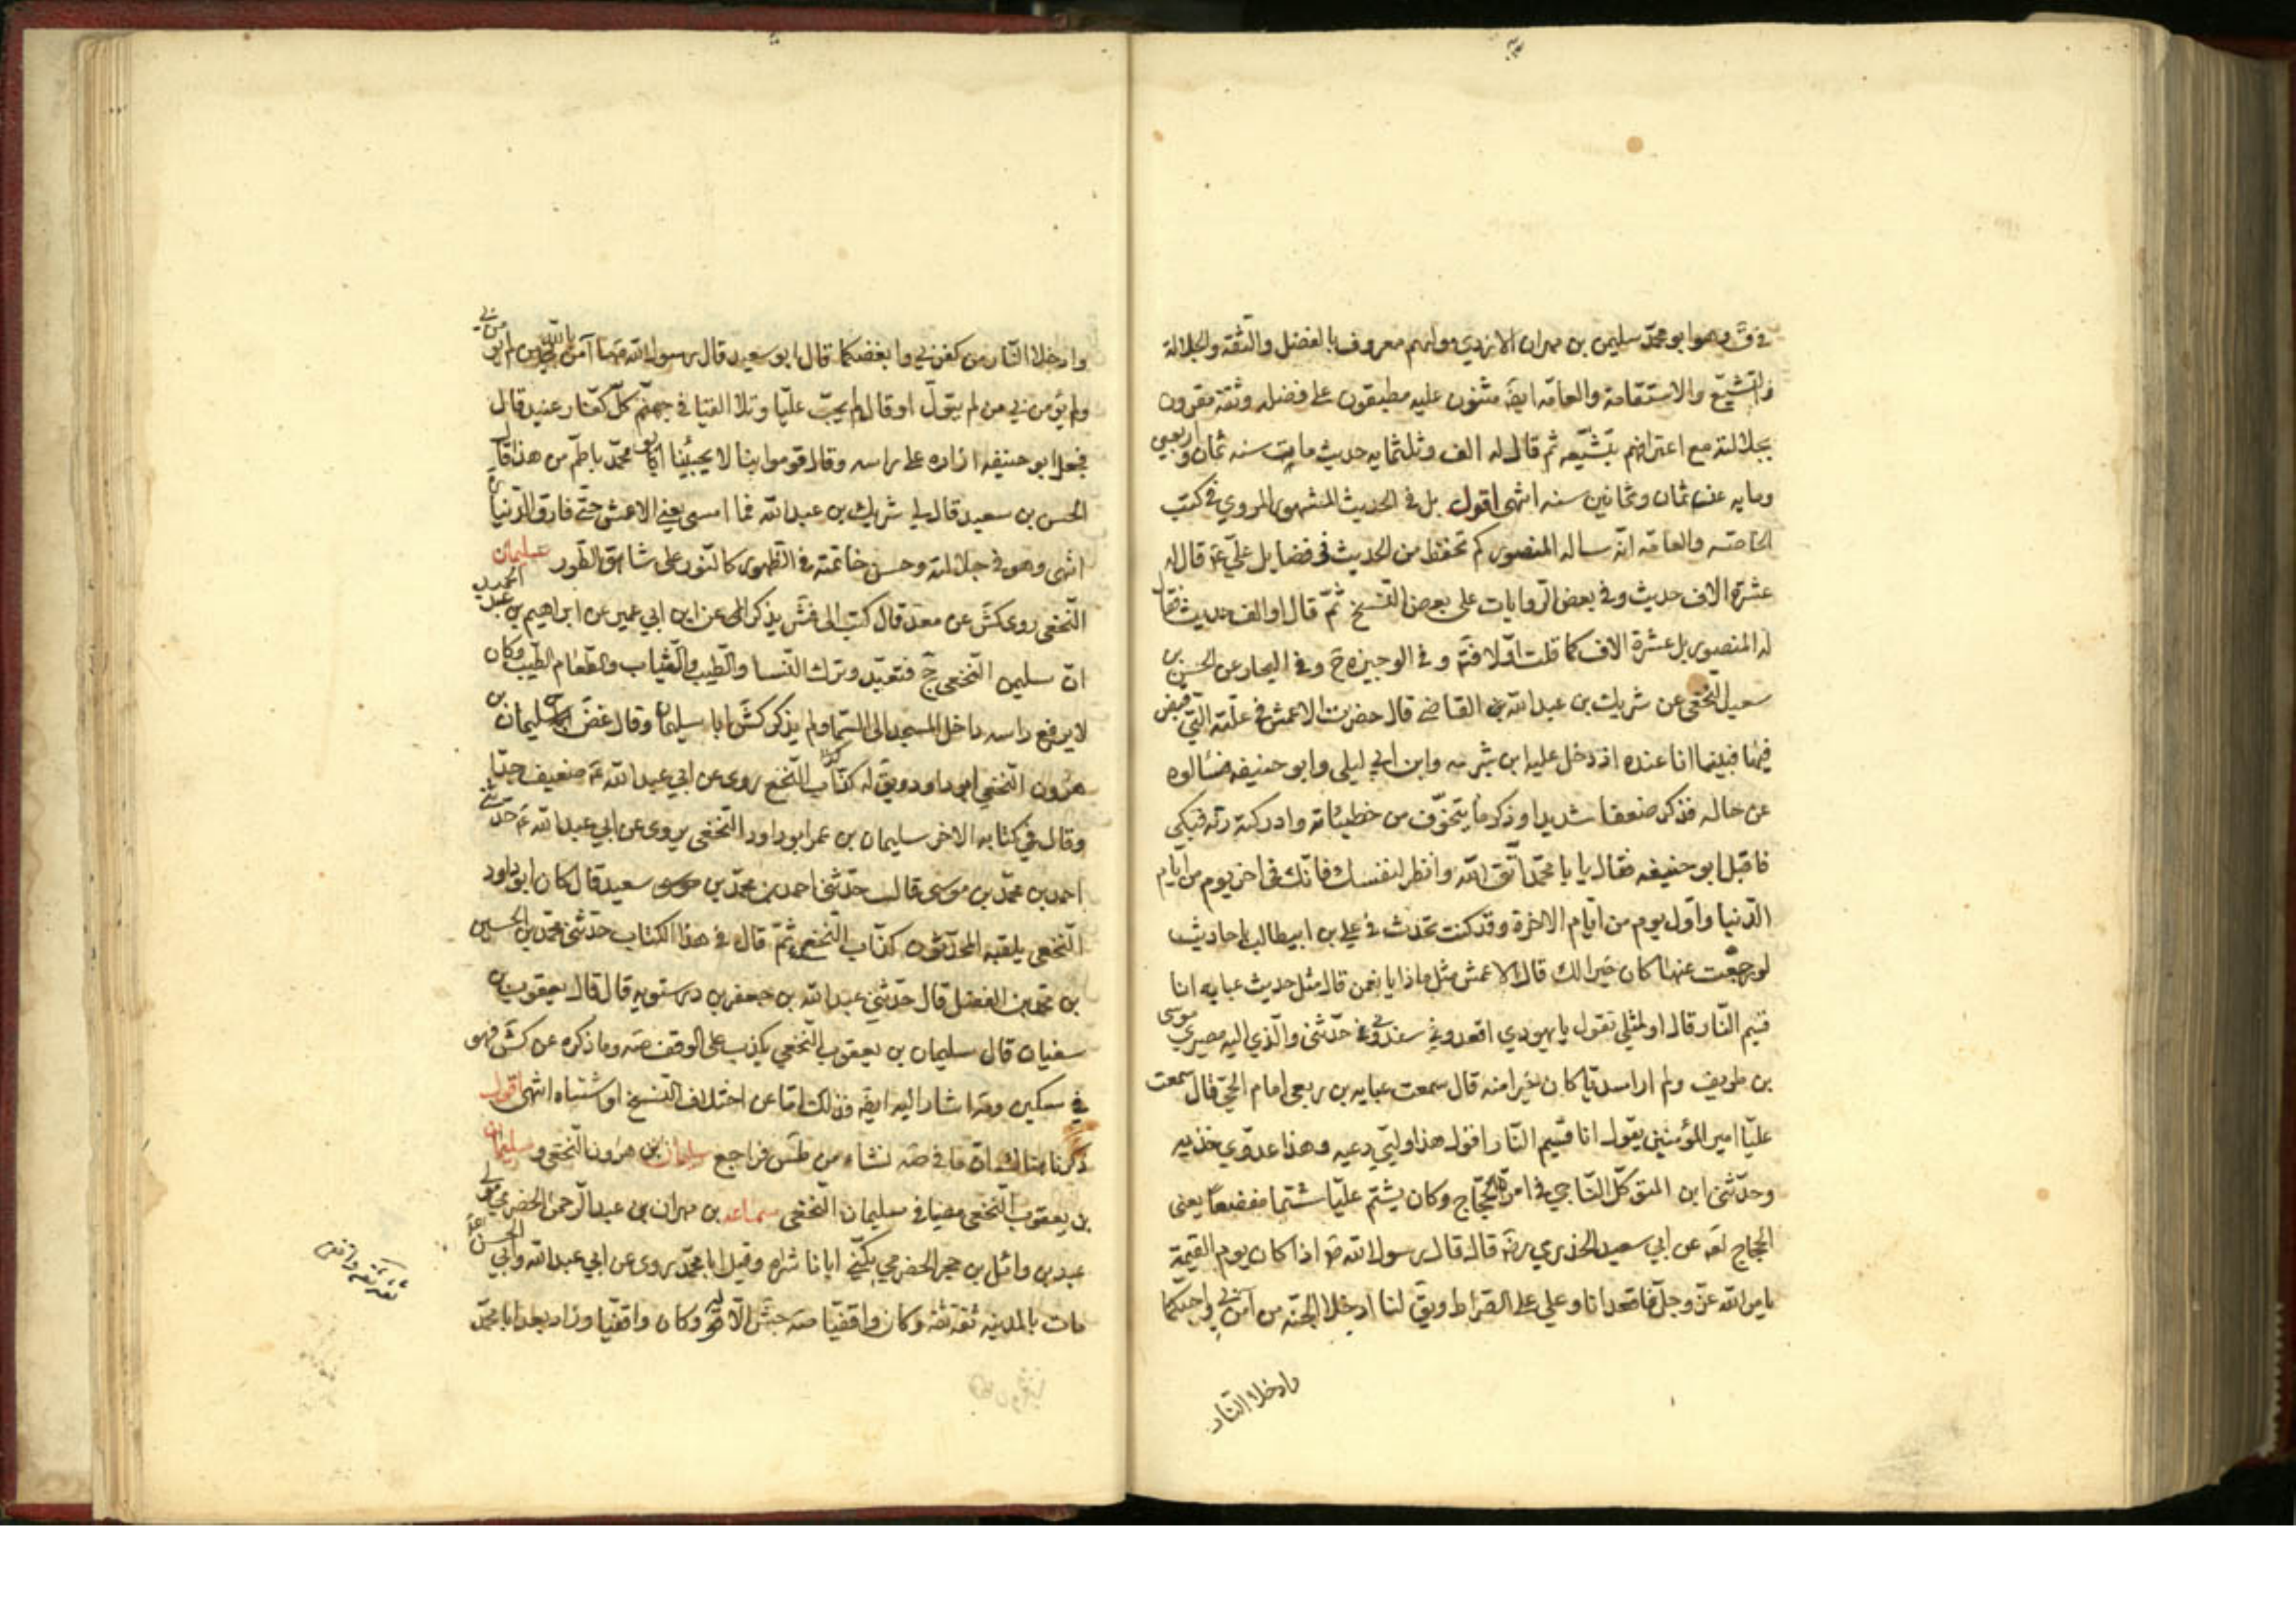 في ق وهو ابو محمد سليمن بن مهران الازدي مولاهم معروف بالفضل والثقه والجلالة
والتشيّع والاستقامة والعامّه ايضَ مثنون عليه مطبقون على فضله وثقته مقرون
بجلالته مع اعترافهم بتشيّعه ثم قال له الف وثلثمايه حديث مات سنه ثمان واربعين
ومايه عن ثمان وثمانين سنه انتهى اقول بل في الحديث المشهور المروي في كتب
الخاصّه والعامّه انّه ساله المنصور كم تحفظ من الحديث في فضايل علي ع قال له
عشرة الاف حديث وفي بعض الروايات على بعض النسخ ثمّ قال او الف حديث فقال
له المنصور بل عشرة الاف كما قلت اوّلا فتم وفي الوجيزه ح وفي البحار عن الحسن بن
سعيد النخعي عن شريك بن عبد الله القاضي قال حضرت الاعمش في علّته التي قبض
فيها فبينما انا عنده اذ دخل عليه ابن شبرمه وابن ابي ليلى وابو حنيفه فسالوه
عن حاله فذكر ضعفا شديدا وذكر ما يتخوّف من خطيئاته وادركته رنّه فبكى
فاقبل ابو حنيفه فقال يا با محمّد اتّق الله وانظر لنفسك فانّك في اخر يوم من ايّام
الدّنيا واوّل يوم من ايّام الاخرة وقد كنت تحدث في علي بن ابيطالب باحاديث
لو رجعت عنها كان خيرا لك قال الاعمش مثل ماذا يا نعمن قال مثل حديث عبايه انا
قسيم النّار قال او لمثلي تقول يا يهودي اقعدوني سندوني حدّثني والّذي اليه مصيري موسى
بن طريف ولم ار اسديّا كان خيرا منه قال سمعت عبايه بن ربعي امام الحيّ قال سمعت
عليّا امير المؤمنين يقول انا قسيم النّار اقول هذا وليّي دعيه وهذا عدوّي خذيه
وحدّثني ابن المتوكّل النّاجي في امرة الحجّاج وكان يشتم عليّا شتما مفضعا يعني
الحجاج لعه عن ابي سعيد الخدري رضَه قال قال رسول الله ص اذا كان يوم القيمة
يامر الله عزّ وجلّ فاقعد انا وعلي على الصّراط ويقَ لنا ادخلا الجنّه من آمن بي واحبّكما
وادخلا النّار
وادخلا النّار من كفر بي وابغضكما قال ابو سعيد قال رسول الله ص ما آمن بالله من لم يؤمن بي
ولم يؤمن بي من لم يتولّ او قال لم يحبّ عليّا وتلا القيا في جهنّم كلّ كفّار عنيد قال
فجعل ابو حنيفه ازاره على راسه وقال قوموا بنا لا يجيئنا ابو محمّد باطمّ من هذا قال
الحسن بن سعيد قال لي شريك بن عبد الله فما امسى يعني الاعمش حتّى فارق الدّنيا
انتهى وهو في جلالته وحسن خاتمته في الظهور كالنّور على شاهق الطّور سليمان
النّخعي روى كَش عن قال كتب الى يذكر عن ابن ابي عمير عن ابراهيم بن عبد الحميد
انّ سليمن النّخعي حجّ فتعبّد وترك النّسا والطّيب والثّياب والطّعام الطّيب وكان
لا يرفع راسه داخل المسجد الى السّما ولم يذكر كَش ابا سليمان وقال غض سليمان بن
هرون النّخعي ابو داود ويقَ له كذّاب النّخع روى عن ابي عبد الله ع ضعيف جدّا
وقال في كتابه الاخر سليمان بن عمر ابو داود النّخعي يروى عن ابي عبد الله ع حدّثني
احمد بن محمّد بن موسى قال حدّثني احمد بن محمّد بن سعيد قال كان ابو داود
النّخعي يلقبه المحدّثون كذّاب النّخع ثمّ قال في هذا الكتاب حدّثني محمّد بن الحسين
بن محمد بن الفضل قال حدّثني عبد الله بن جعفر بن درستويه قال قال يعقوب بن
سفيان قال سليمان بن يعقوب النّخعي يكذب على الوقف صَه وما ذكره عن كَش فهو
في مسكين وقد اشار اليه ايضَ وذلك امّا عن اختلاف النّسخ او اشتباه انتهى اقول
ذكرنا هناك انّ ما في صَه نشاء من طَس فراجع سليمان بن هرون النّخعي وسليمان
بن يعقوب النّخعي مضيا في سليمان النّخعي سماعه بن مهران بن عبد الرّحمن الحضرمي مولى
عبد بن وائل بن حجر الحضرمي يكنّى ابا ناشره وقيل ابا محمّد روى عن ابي عبد الله وابي الحسن ع
مات بالمدينه ثقه ثقه وكان واقفيّا صَه جَش الّا قوله وكان واقفيّا وزاد بعد ابا محمّد